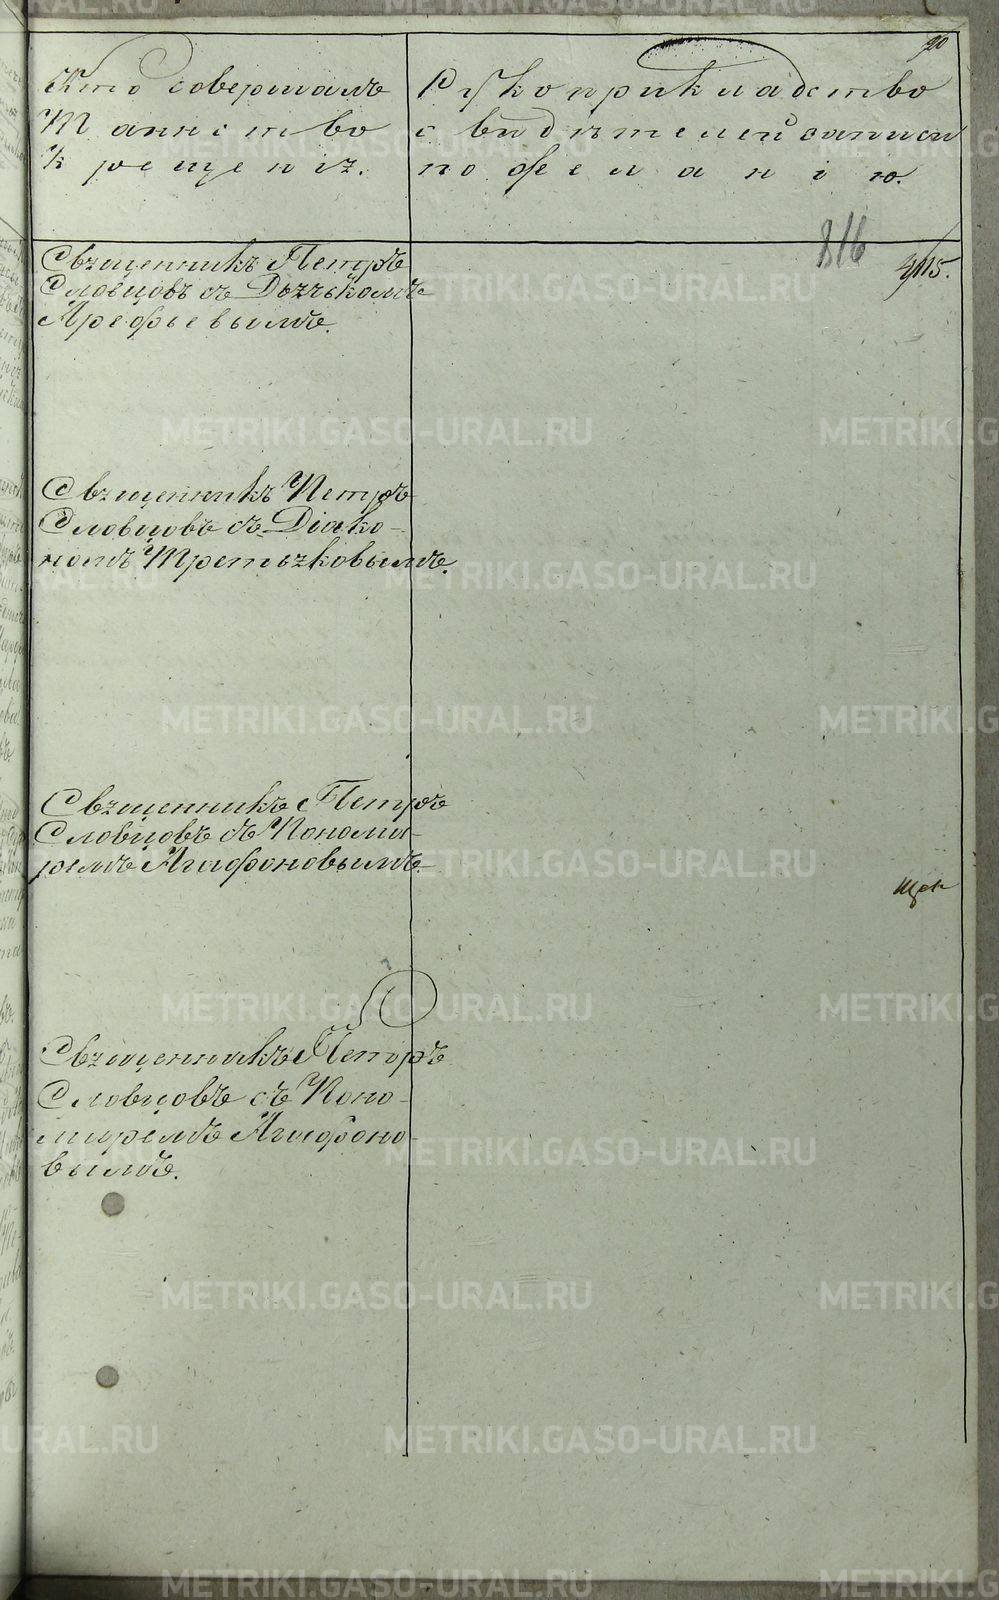 20
Кто совершалъ
Таинство
Крещенія.
Рукоприкладство
свидѣтелей записи
по желанію.
816
Священникъ Петръ
Словцовъ съ Дьячкомъ
Арефьевымъ.
Священникъ Петръ
Словцовъ съ Діако-
номъ Третьяковымъ.
Священникъ Петръ
Словцовъ съ Понома-
ремъ Агафоновымъ.
Священникъ Петръ
Словцовъ съ Поно-
маремъ Агафоно-
вымъ.
METRIKI.GASO-URAL.RU